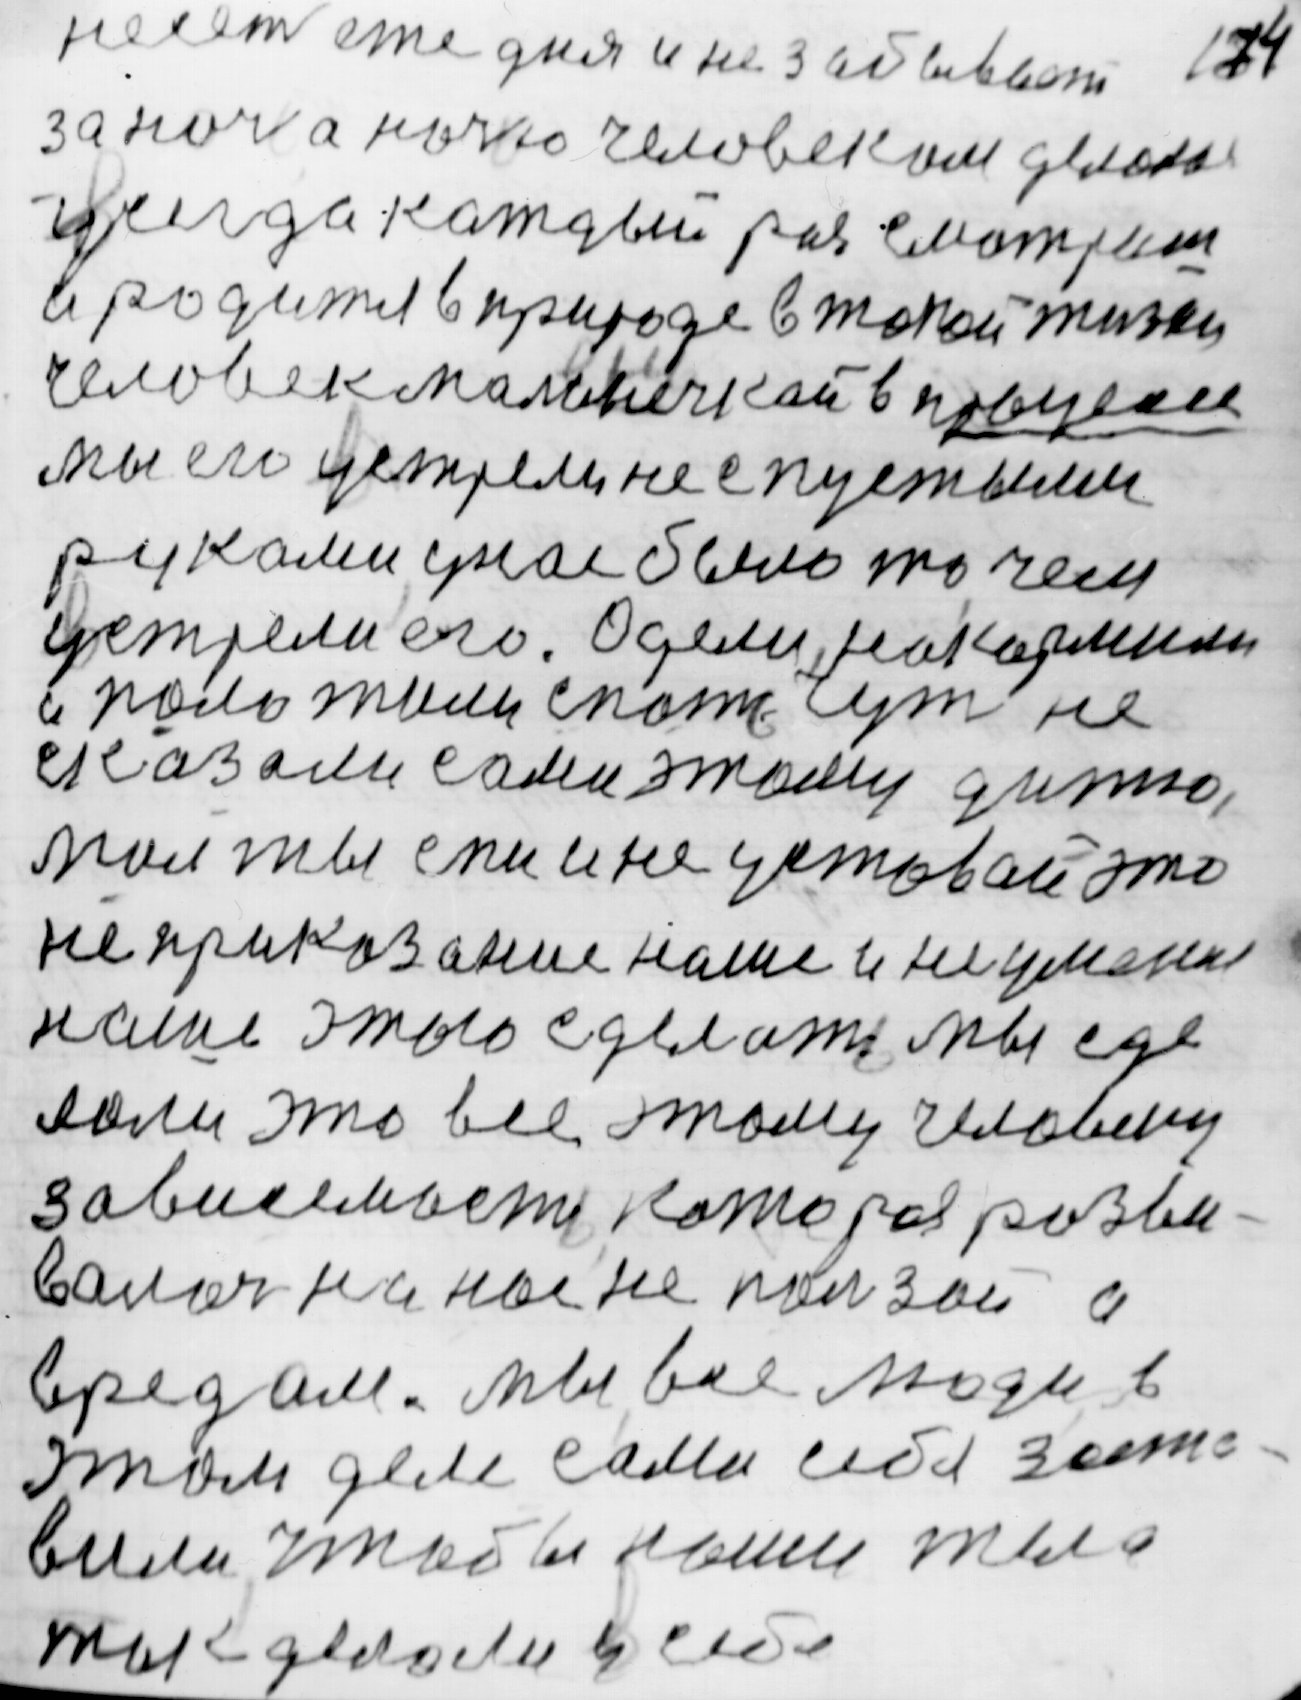 несет сте дня и не забывает 174
за ноч а ночю человеком делаеш
усегда каждый раз смотриш
и родитил в природе в токой жизни
человек маленечкай в процесе
мы его устрели не с пустыми
руками унас было то чем
устрели его. Одели, накормили
и положили спать чут не
сказали сами этому дитю,
мол ты спи и не уставай это
не приказание наше и не умение
наше этого сделать мы сде
лали это все этому человеку
зависемасть каторая розви-
валас на нас не ползой а
вредам. мы все люди в
этом деле сами себя заста-
вили чтобы наши тела
так делали у себе